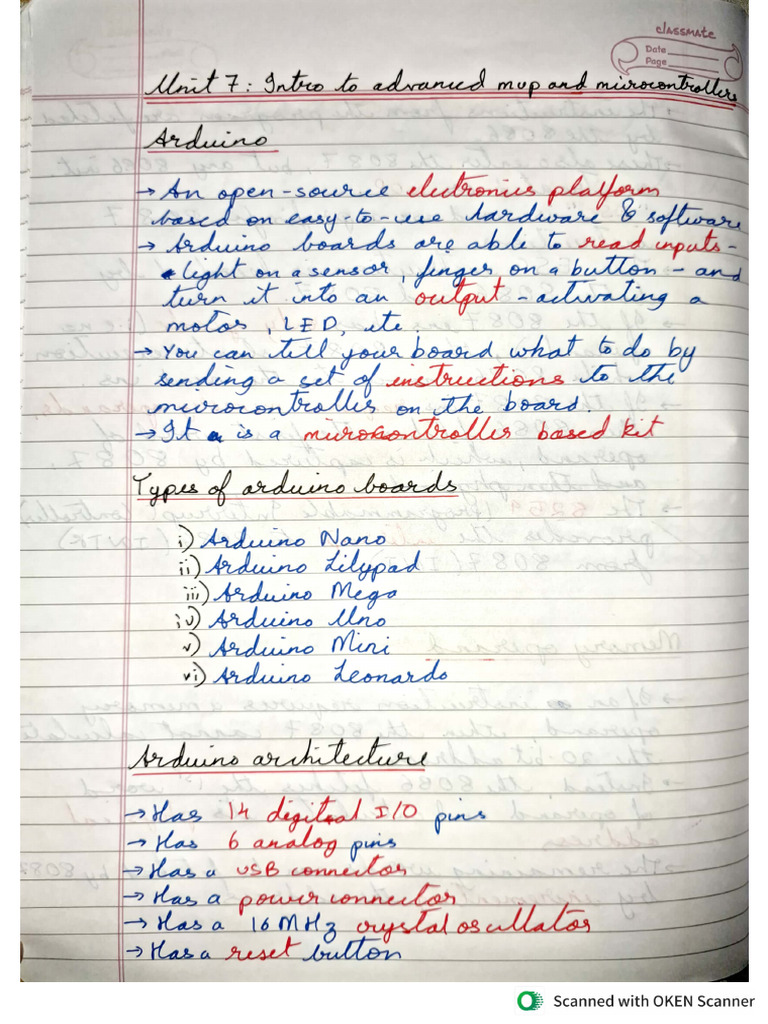 classmate
Date
Page
Unit 7: Intro to advanced mup and microcontrollers
Arduino
→ An open-source electronics platform
based on easy-to-use hardware & software
→ Arduino boards are able to read inputs -
light on a sensor, finger on a button - and
turn it into an output - activating a
motor, LED, etc.
→ You can tell your board what to do by
sending a set of instructions to the
microcontroller on the board.
→ It is a microcontroller based kit
Types of arduino boards
i) Arduino Nano
ii) Arduino Lilypad
iii) Arduino Mega
iv) Arduino Uno
v) Arduino Mini
vi) Arduino Leonardo
Arduino architecture
→ Has 14 digital I/O pins
→ Has 6 analog pins
→ Has a USB connector
→ Has a power connector
→ Has a 16 MHz crystal oscillator
→ Has a reset button
Scanned with OKEN Scanner